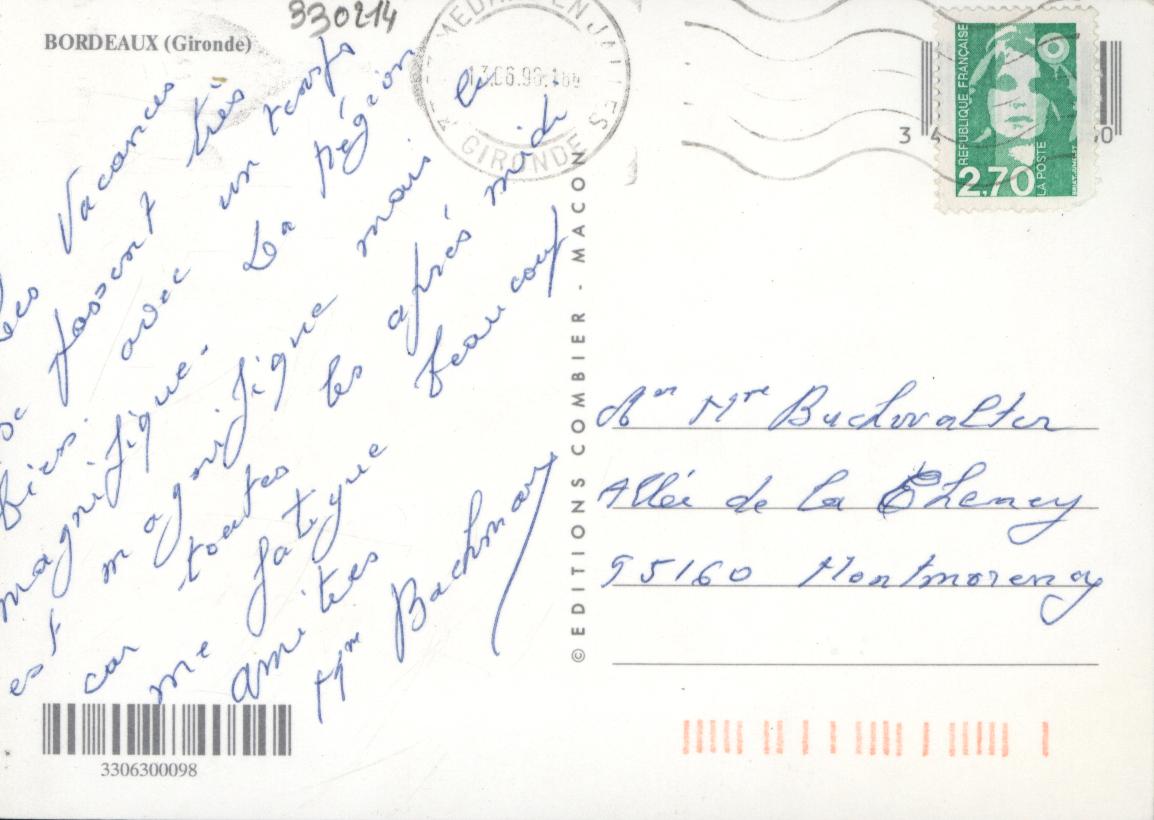 330214
BORDEAUX (Gironde)
Les Vacances
se passent très
bien. avec un temps
magnifique. La région
est magnifique mais le
car toutes les après midi
me fatigue beaucoup
amitiés
Mme Bachman
3306300098
© EDITIONS COMBIER - MACON
GIRONDE
13.06.96
REPUBLIQUE FRANÇAISE
LA POSTE
2,70
3
0
Mr Mme Buchwalter
Allée de la Chenay
95160 Montmorency